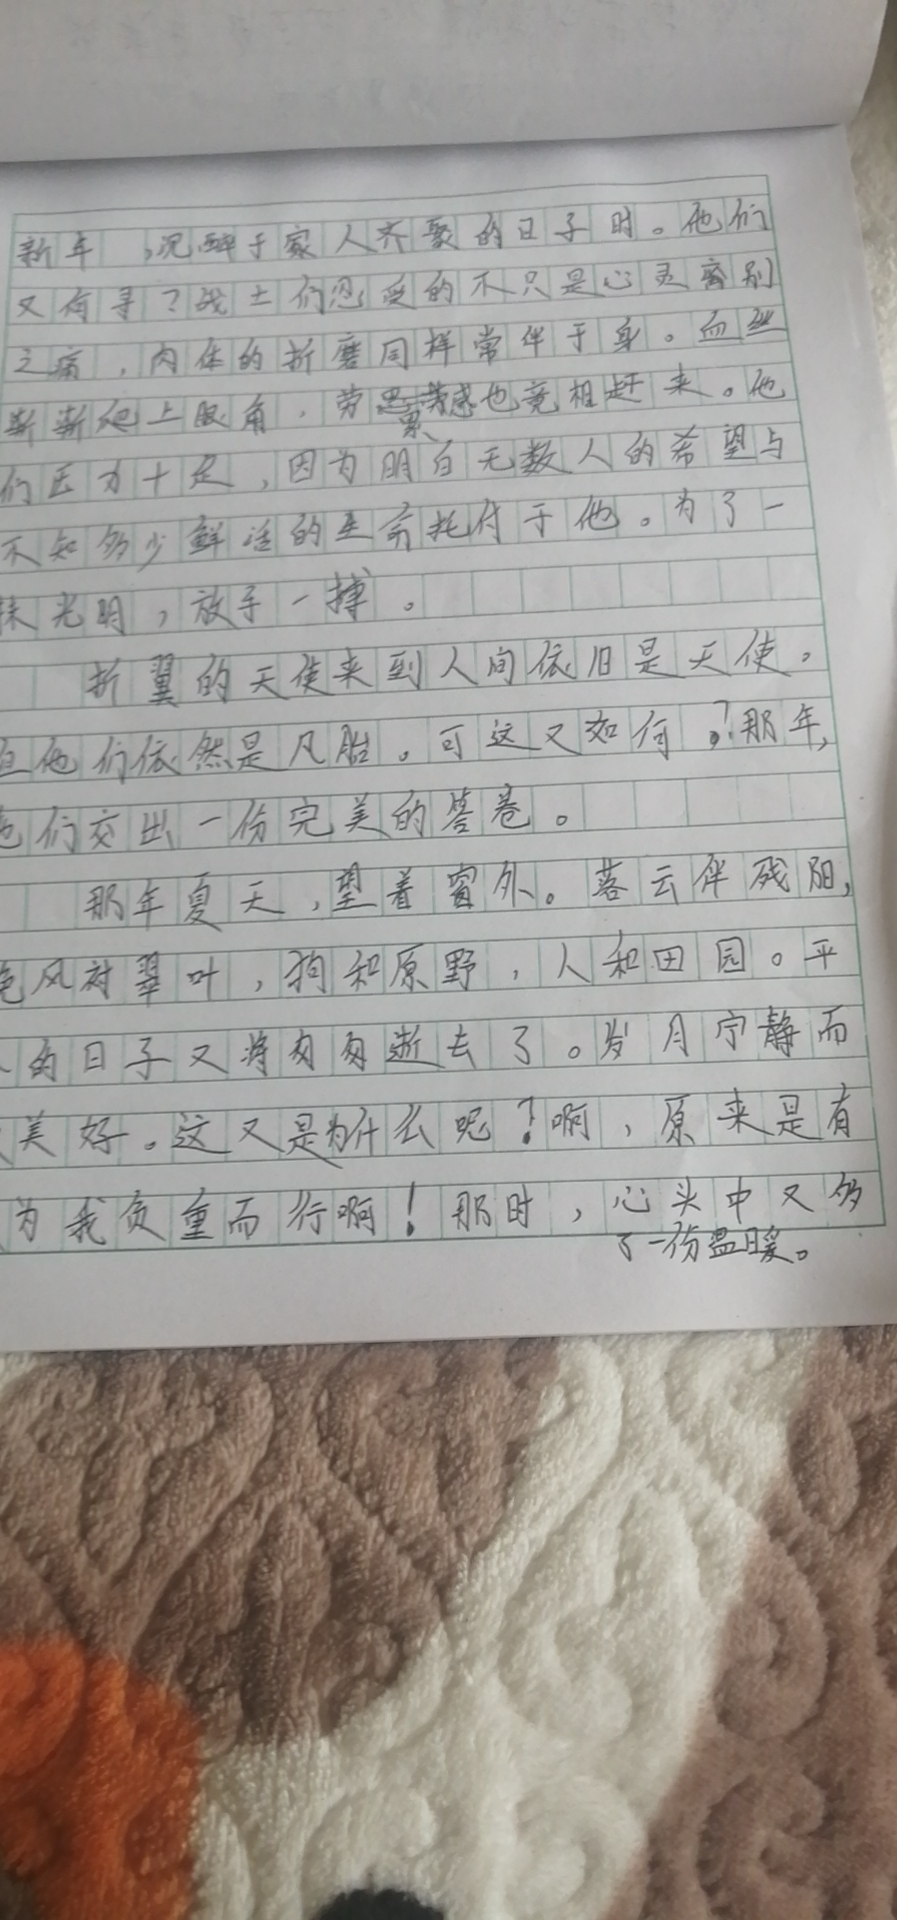 新年，沉醉于家人齐聚的日子时。他们
又何寻？战士们忍受的不只是心灵离别
之痛，肉体的折磨同样常伴于身。血丝
渐渐爬上眼角，劳累感也竟相赶来。他
们压力十足，因为明白无数人的希望与
不知多少鲜活的生命托付于他。为了一
抹光明，放手一搏。
折翼的天使来到人间依旧是天使。
但他们依然是凡胎。可这又如何？那年，
他们交出一份完美的答卷。
那年夏天，望着窗外。落云伴残阳，
风衬翠叶，狗和原野，人和田园。平
的日子又将匆匆逝去了。岁月宁静而
美好。这又是为什么呢？啊，原来是有
为我负重而行啊！那时，心头中又多
了一份温暖。